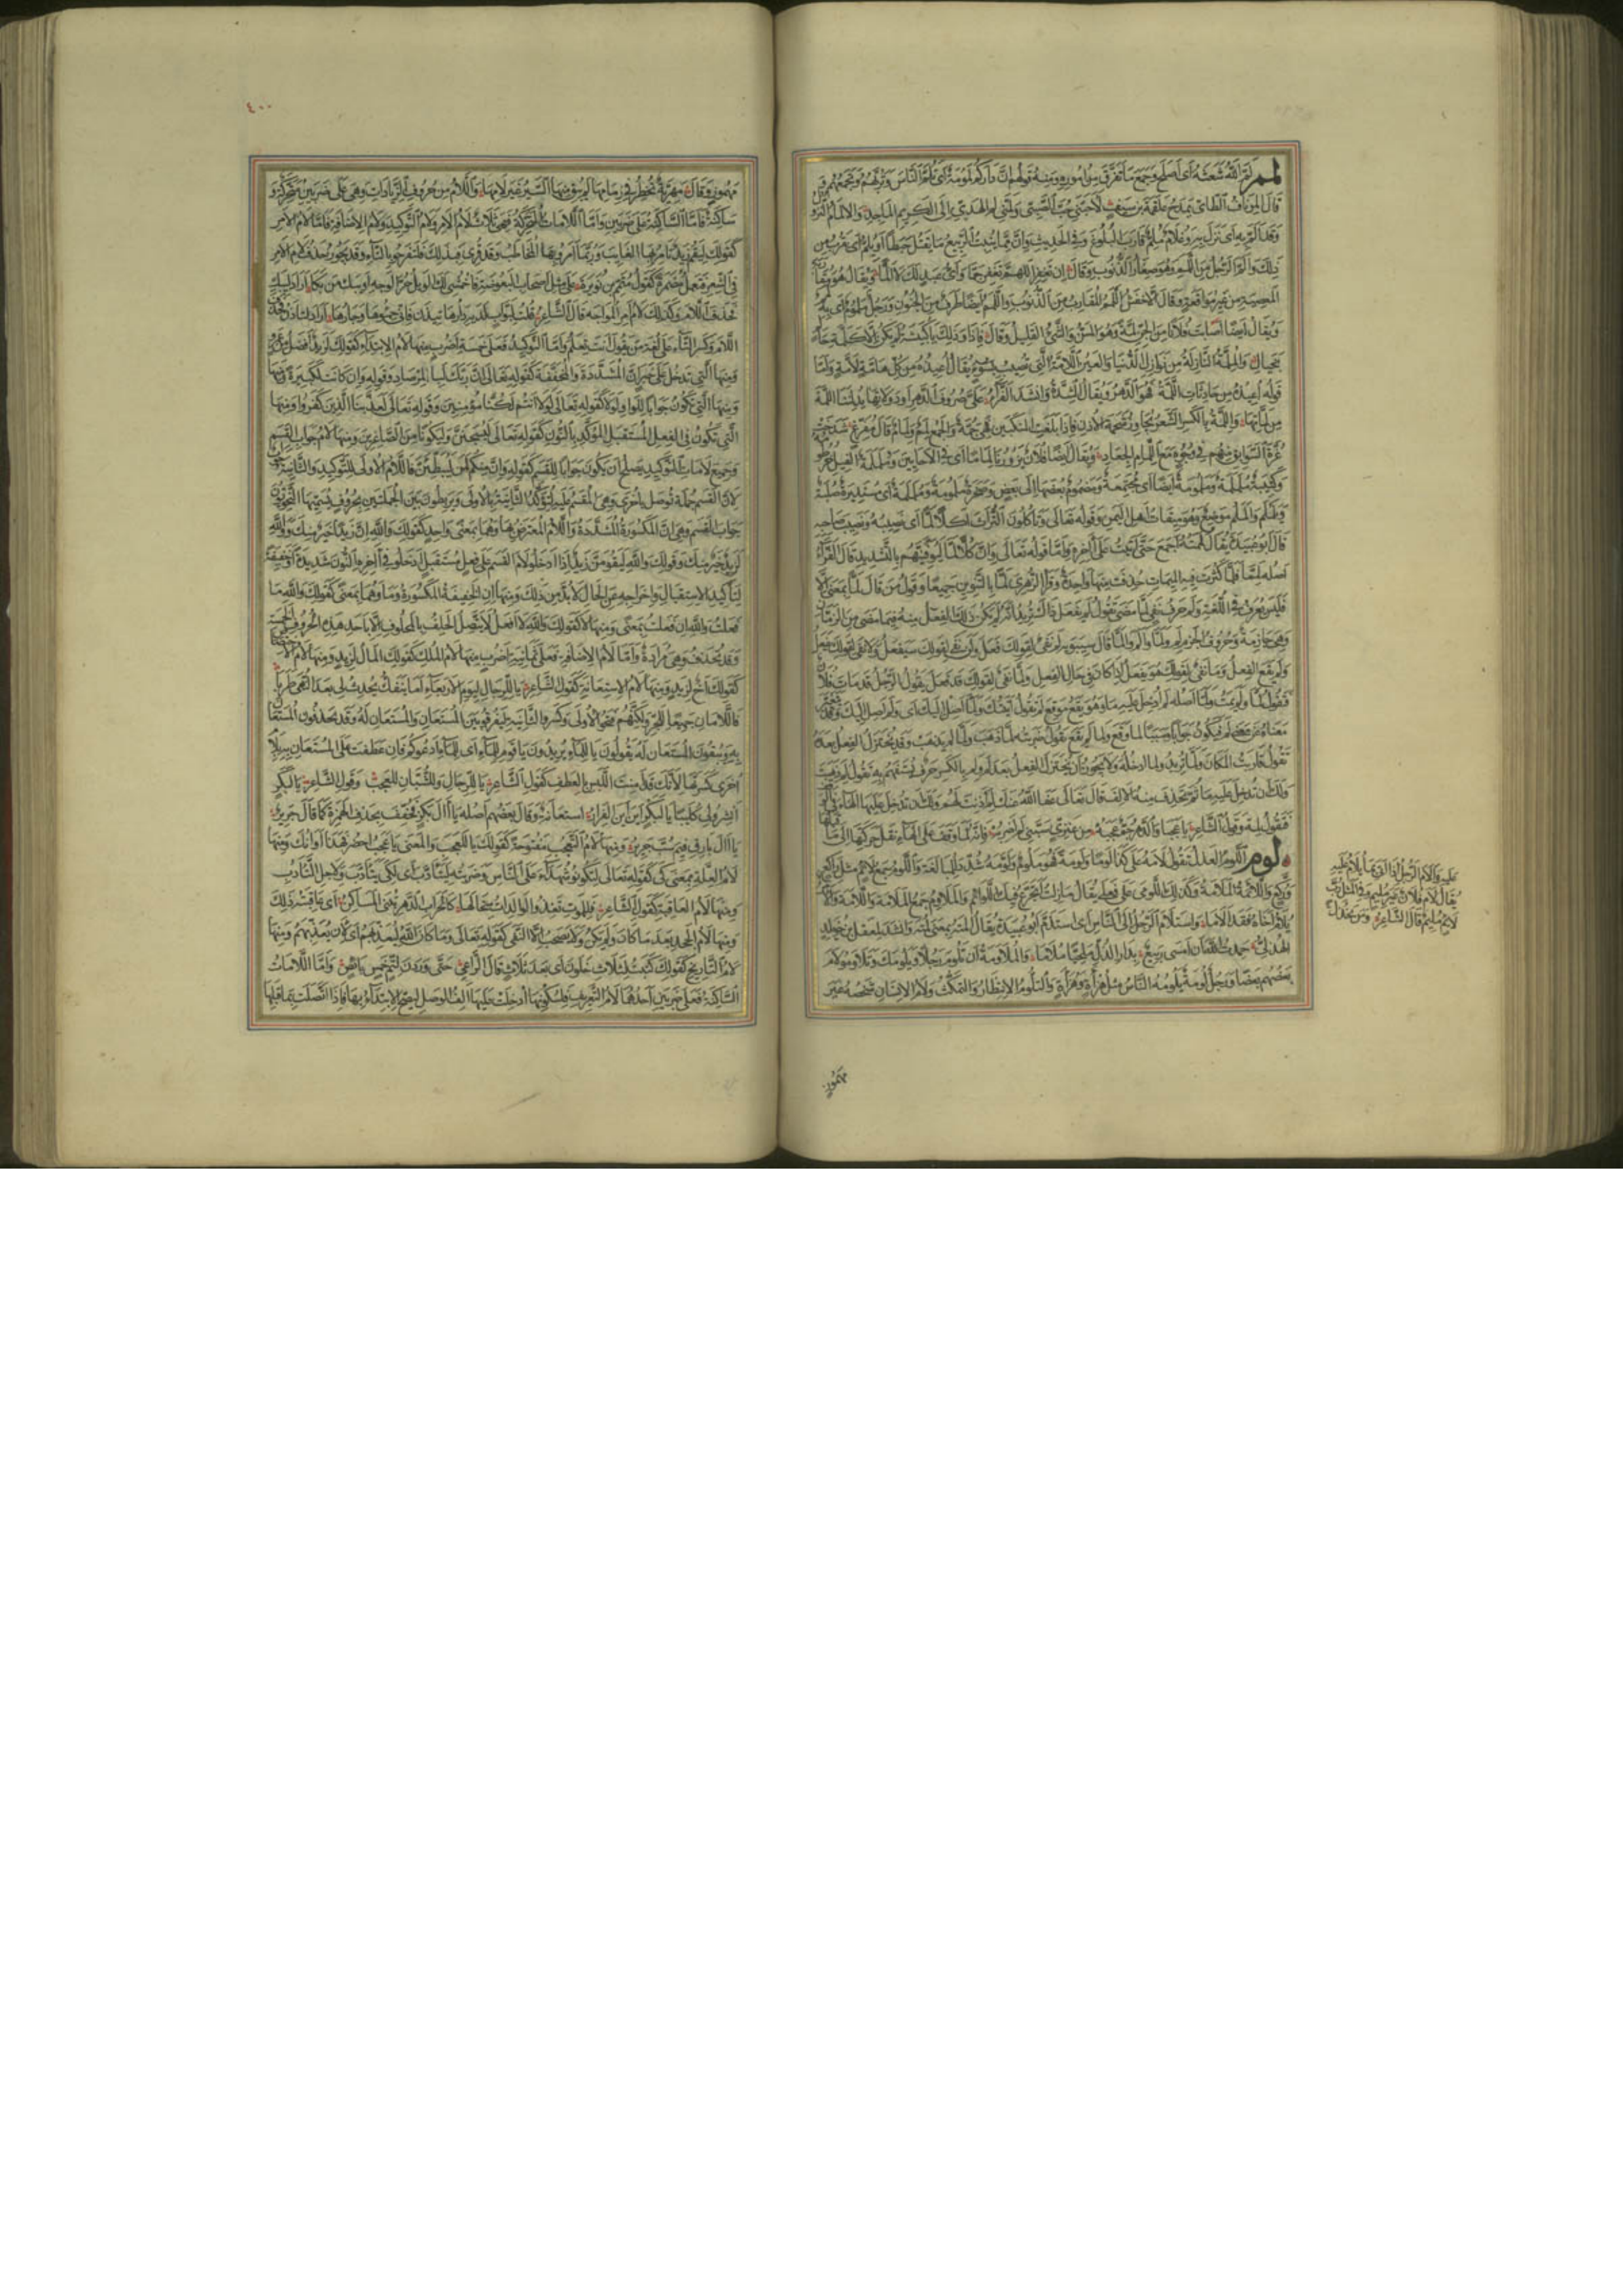 لمم لَمَّ اللّٰه شعثه اى اصلح وجمع ما تفرق من اموره ومنه قولهم ان داركم لمومة اى تلم الناس وتربهم وتجمعهم
قال المرناف الطائى يمدح علقمة بن سيف لاحبنى حب الصبى ولمنى لم الهدى الى الكريم الماجد والالمام النزول
وقد الم به اى نزل به وغلام ملم قارب البلوغ وفى الحديث وان مما ينبت الربيع ما يقتل حبطا او يلم اى يقرب من
ذلك والم الرجل من اللمم وهو صغار الذنوب وقال ان تغفر اللهم تغفر جما واى عبد لك لا الما ويقال هو مقاربة
المعصية من غير مواقعة وقال الاخفش اللمم المقارب من الذنوب واللمم ايضا طرف من الجنون ورجل ملموم اى به لمم
ويقال ايضا اصابت فلانا من الجن لمة وهو المس والشىء القليل وقال فاذا وذلك يا كبيشة لم يكن الا كلمة حالم
بخيال والملمة النازلة من نوازل الدنيا والعين اللامة التى تصيب بسوء يقال اعيذه من كل هامة ولامة واما
قوله اعيذه من حادثات اللمة هو الدهر ويقال الشدة وانشد الفراء على صروف الدهر او دولاتها يدلننا اللمة
من لماتها واللمة بالكسر الشعر يجاوز شحمة الاذن فاذا بلغت المنكبين فهى جمة والجمع لمم ولمام قال ابن مفرغ شدخت
غرة السوابق منهم فى وجوه مع اللمام الجعاد ويقال ايضا فلان يزورنا لماما اى فى الاحايين وململمة الفيل خرطومه
وكتيبة ململمة وملمومة ايضا اى مجتمعة مضموم بعضها الى بعض وصخرة ملمومة وململمة اى مستديرة صلبة
ويلملم والملم موضع وهو ميقات اهل اليمن وقوله تعالى وتأكلون التراث اكلا لما اى نصيبه ونصيب صاحبه
قال ابو عبيدة يقال لممته اجمع حتى اتيت على آخره واما قوله تعالى وان كلا لما ليوفينهم بالتشديد قال الفراء
اصله لمما فلما كثرت فيه الميمات حذفت منها واحدة وقرأ الزهرى لما بالتنوين جميعا وقول من قال لما بمعنى الا
فليس يعرف فى اللغة ولم حرف نفى لما مضى تقول لم يفعل ذاك تريد انه لم يكن ذلك الفعل منه فيما مضى من الزمان
وهى جازمة وحروف الجزم لم ولما والم والما قال سيبويه لم نفى لقولك فعل ولن نفى لقولك سيفعل ولا نفى لقولك يفعل
ولم يقع الفعل وما نفى لقولك هو يفعل اذا كان فى حال الفعل ولما نفى لقولك قد فعل يقول الرجل قد مات فلان
فتقول لما ولم يمت ولما اصله لم ادخل عليه ما وهو يقع موقع لم تقول اتيتك ولما اصل اليك اى ولم اصل اليك وقد يتغير
معناه عن معنى لم فيكون جوابا وسببا لما وقع ولما لم يقع تقول ضربته لما ذهب ولما لم يذهب وقد يختزل الفعل بعده
تقول قاربت المكان ولما تريد ولما ادخله ولا يجوز ان يختزل الفعل بعد لم ولم بالكسر حرف يستفهم به تقول لم ذهبت
ولك ان تدخل عليه ما ثم تحذف منه الالف قال تعالى عفا اللّٰه عنك لم اذنت لهم ولك ان تدخل عليها الهاء فى الوقف
فتقول لمه وقول الشاعر يا عجبا والدهر جم عجبه من عنزى سبنى لم اضربه فانه لما وقف على الهاء نقل حركتها الى ما قبلها
لوم اللوم العذل تقول لامه على كذا لوما ولومة فهو ملوم ولومه شدد للمبالغة واللوم جمع لائم مثل راكع
وركع واللائمة الملامة وكذلك اللومى على فعلى يقال ما زلت اتجرع فيك اللوائم والملاوم جمع الملامة واللامة والام
يلام احاه فقد الاما واستلام الرجل الى الناس اى استذم ابو عبيدة يقال المته بمعنى لمته وانشد لمعقل بن خويلد
الهذلى حمدت اللّٰه ان امسى ربيع بدار الذل ملحيا ملاما والملاومة ان تلوم رجلا ويلومك وتلاوموا لام
بعضهم بعضا ورجل لومة يلومه الناس مثل هزأة وهزأة والتلوم الانتظار والتمكث ولام الانسان شخصه غير
مهموز
عليه والام الرجل اذا اتى بما يلام عليه
يقال لام فلان غير مليم وفى المثل رب
لائم مليم قال الشاعر ومن يخذل
٤٠٠
مهموز وقال مهرية تخطر فى زمامها لم يبق منها السير غير لامها واللام من حروف الزيادات وهى على ضربين متحركة و
ساكنة فاما الساكنة على ضربين واما اللامات المتحركة فهى ثلاث لام الامر ولام التوكيد ولام الاضافة فاما لام الامر
كقولك ليقم زيد تأمر بها الغايب وربما امروا بها المخاطب وقد قرئ فبذلك فلتفرحوا بالتاء وقد يجوز حذف لام الامر
فى الشعر فتعمل مضمرة كقول متمم بن نويرة على مثل اصحاب البعوضة فاخمشى لك الويل حر الوجه او يبك من بكى اراد ليبك
فحذف اللام وكذلك لام امر المواجه قال الشاعر قلت لبواب لديه دارها تيذن فانى حموها وجارها اراد لتأذن فحذف
اللام وكسر التاء على لغة من يقول انت تعلم واما التوكيد فعلى خمسة اضرب منها لام الابتداء كقولك لزيد افضل من عمرو
ومنها التى تدخل على خبر ان المشددة والمخففة كقوله تعالى ان ربك لبالمرصاد وقوله وان كانت لكبيرة ومنها
ومنها التى تكون جوابا للو ولولا كقوله تعالى لولا انتم لكنا مؤمنين وقوله تعالى لعذبنا الذين كفروا ومنها
التى تكون فى الفعل المستقبل المؤكد بالنون كقوله تعالى ليسجنن وليكونا من الصاغرين ومنها لام جواب القسم
وجميع لامات التوكيد يصلح ان يكون جوابا للقسم كقوله وان منكم لمن ليبطئن فاللام الاولى للتوكيد والثانية جواب
لان القسم جملة توصل باخرى وهى المقسم عليه لتؤكد الثانية بالاولى ويربطون بين الجملتين بحروف يسميها النحويون
جواب القسم وهى ان المكسورة المشددة واللام المعترض بها وهما بمعنى واحد كقولك واللّٰه ان زيدا خير منك وواللّٰه
لزيد خير منك وقولك واللّٰه ليقومن زيد اذا ادخلوا لام القسم على فعل مستقبل ادخلوا فى آخره النون شديدة او خفيفة
لتأكيد الاستقبال واخراجه عن الحال لا بد من ذلك ومنها ان الخفيفة المكسورة وما وهما بمعنى كقولك واللّٰه ما
فعلت وواللّٰه ان فعلت بمعنى ومنها لا كقولك واللّٰه لا افعل لا يتصل الحلف بالمحلوف الا باحد هذه الحروف الخمسة
وقد تحذف وهى مرادة واما لام الاضافة فعلى ثمانية اضرب منها لام الملك كقولك المال لزيد ومنها لام الاختصاص
كقولك اخ لزيد ومنها لام الاستغاثة كقول الشاعر يا للرجال ليوم الاربعاء اما ينفك يحدث لى بعد النهى طربا
فاللامان جميعا للجر ولكنهم فتحوا الاولى وكسروا الثانية ليفرقوا بين المستغاث والمستغاث له وقد يحذفون المستغاث
به ويبقون المستغاث له يقولون يا للماء يريدون يا قوم للماء اى للماء ادعوكم فان عطفت على المستغاث به بلام
اخرى كسرتها لانك قد امنت اللبس بالعطف كقول الشاعر يا للرجال وللشبان للعجب وقول الشاعر يا لبكر
انشروا لى كليبا يا لبكر اين اين الفرار استغاثة وقال بعضهم اصله يا آل بكر فخفف بحذف الهمزة كما قال جرير
يا آل بارق فيم سب جرير ومنها لام التعجب مفتوحة كقولك يا للعجب والمعنى يا عجب احضر فهذا اوانك ومنها
لام العلة بمعنى كى كقوله تعالى لتكونوا شهداء على الناس وضربته ليتأدب اى لكى يتأدب ولاجل التأدب
ومنها لام العاقبة كقول الشاعر فللموت تغذو الوالدات سخالها كما لخراب الدهر تبنى المساكن اى عاقبته ذلك
ومنها لام الجحد بعد ما كان ولم يكن ولا يصحب الا النفى كقوله تعالى وما كان اللّٰه ليعذبهم اى لان يعذبهم ومنها
لام التاريخ كقولك كتبت لثلاث خلون اى بعد ثلاث قال الراعى حتى وردن لتم خمس بائص واما اللامات
الساكنة فعلى ضربين احدهما لام التعريف ولسكونها ادخلت عليها الف الوصل ليصح الابتداء بها فاذا اتصلت بما قبلها